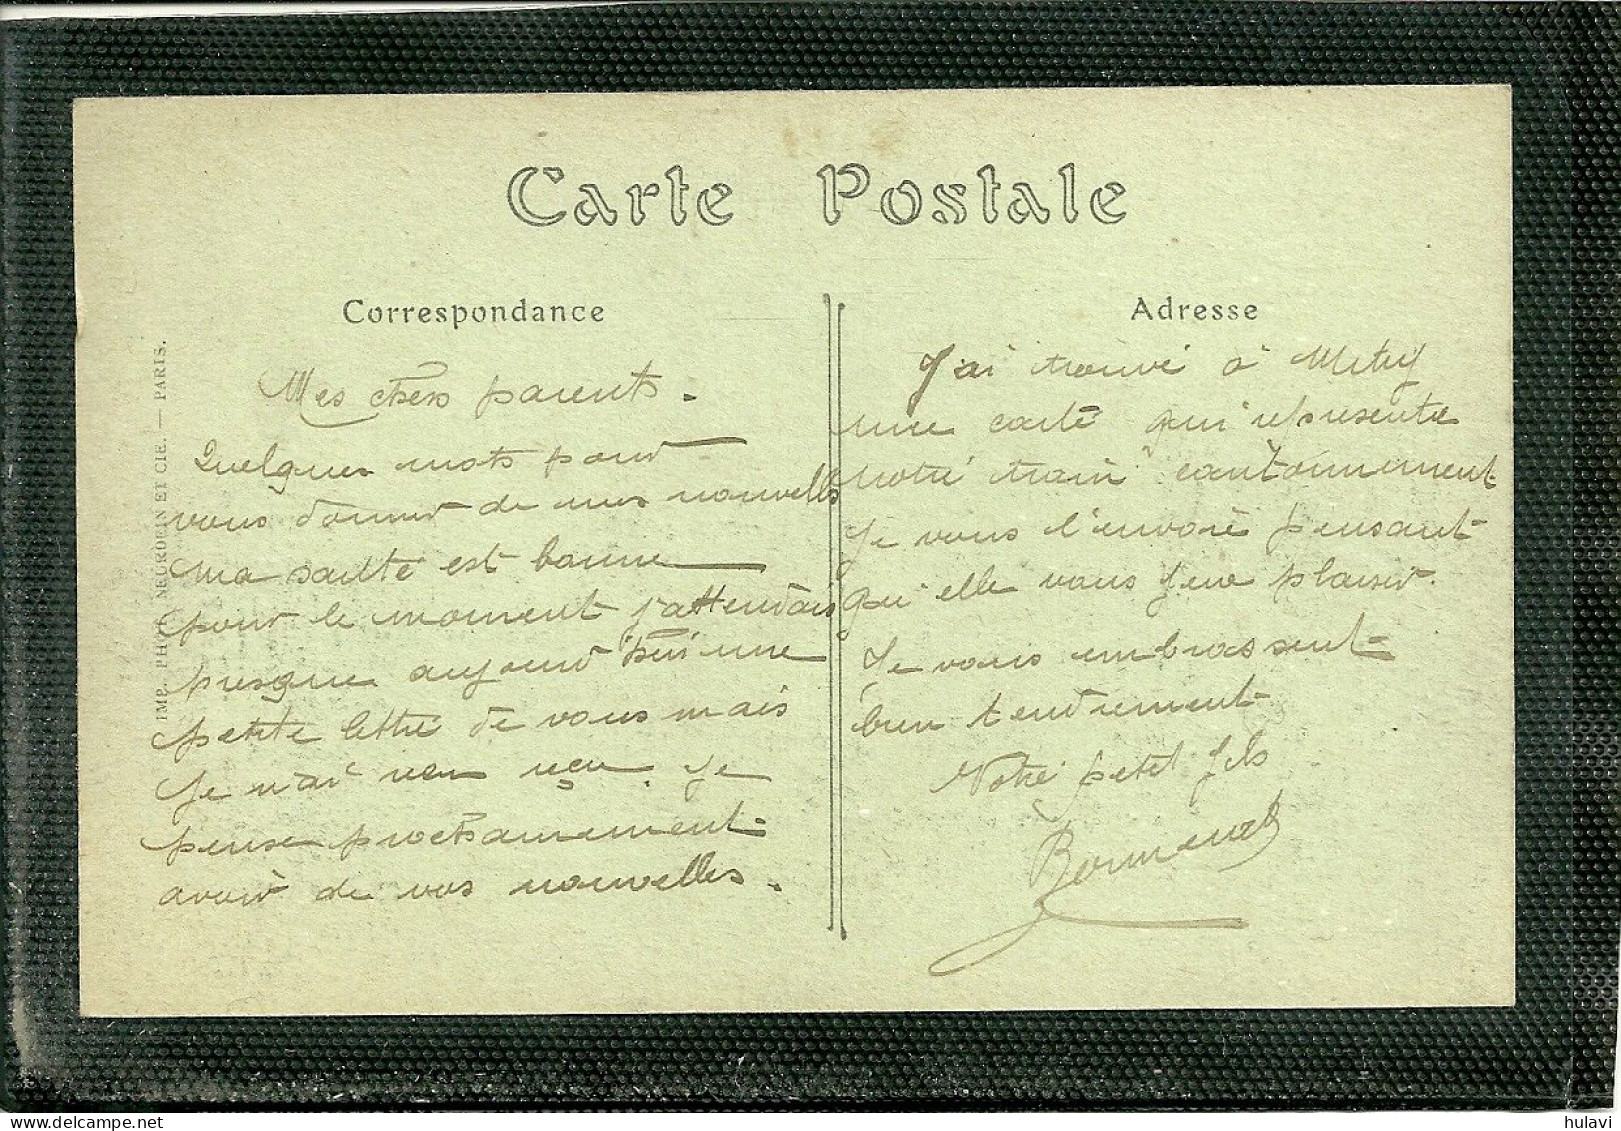 Carte Postale
Correspondance
Adresse
IMP. PHOT. NEURDEIN ET CIE. — PARIS.
Mes chers parents.
Quelques mots pour
vous donner de mes nouvelles
Ma santé est bonne
pour le moment j'attendais
presque aujourd'hui une
petite lettre de vous mais
je n'ai rien reçu. Je
pense prochainement
avoir de vos nouvelles.
J'ai trouvé à Mitry
une carte qui représente
notre train cantonnement
Je vous l'envoie pensant
qu'elle vous fera plaisir.
Je vous embrassent
bien tendrement
Votre petit fils
hulavi
delcampe.net